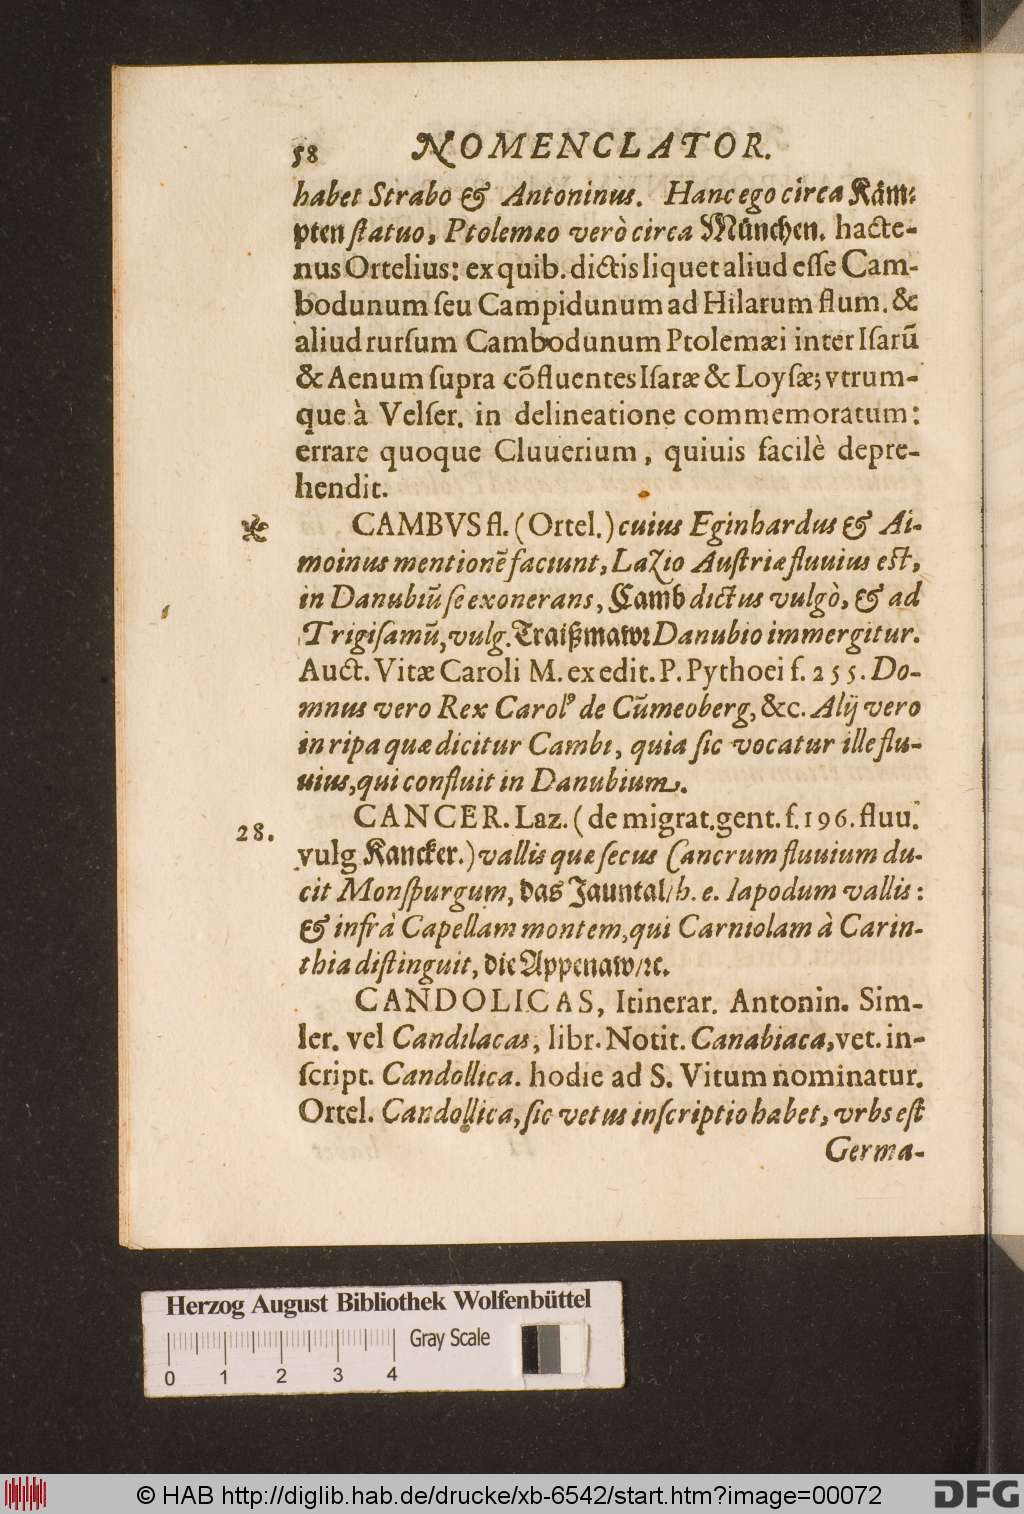 58 NOMENCLATOR.
habet Strabo & Antoninus. Hanc ego circa Kåm⸗
pten ſtatuo, Ptolemæo verò circa Můnchen. hacte-
nus Ortelius: ex quib. dictis liquet aliud eſſe Cam-
bodunum ſeu Campidunum ad Hilarum flum. &
aliud rurſum Cambodunum Ptolemæi inter Iſarū
& Aenum ſupra cōfluentes Iſaræ & Loyſæ; vtrum-
que à Velſer. in delineatione commemoratum:
errare quoque Cluuerium, quiuis facilè depre-
hendit.
CAMBVS fl. (Ortel.) cuius Eginhardus & Ai-
moinus mentionē faciunt, Lazio Auſtriæ fluuius eſt,
in Danubiū ſe exonerans, Camb dictus vulgò, & ad
Trigiſamū, vulg. Traißmawr Danubio immergitur.
Auct. Vitæ Caroli M. ex edit. P. Pythoei f. 255. Do-
mnus vero Rex Carolꝰ de Cūmeoberg, &c. Alij vero
in ripa quæ dicitur Cambi, quia ſic vocatur ille flu-
uius, qui confluit in Danubium.
28.
CANCER. Laz. (de migrat. gent. f. 196. fluu.
vulg Kancker.) vallis quæ ſecus Cancrum fluuium du-
cit Monſpurgum, das Jauntal/ h. e. Iapodum vallis:
& infrà Capellam montem, qui Carniolam à Carin-
thia diſtinguit, die Appenaw/ ꝛc.
CANDOLICAS, Itinerar. Antonin. Sim-
ler. vel Candilacas, libr. Notit. Canabiaca, vet. in-
ſcript. Candollica. hodie ad S. Vitum nominatur.
Ortel. Candollica, ſic vetus inſcriptio habet, vrbs eſt
Germa-
Herzog August Bibliothek Wolfenbüttel
Gray Scale
0 1 2 3 4
© HAB http://diglib.hab.de/drucke/xb-6542/start.htm?image=00072
DFG